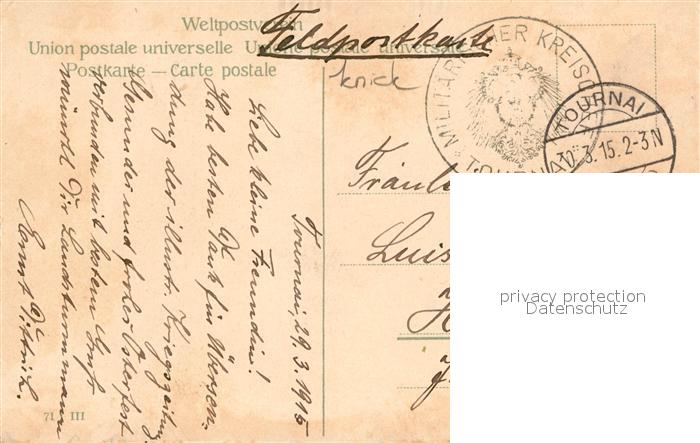 Weltpostverein
Union postale universelle Unione postale universale
Postkarte — Carte postale
Feldpostkarte
knick
MILITÄRISCHER KREISCHEF
TOURNAI
TOURNAI
30.3.15.2-3N
Tournai, 29.3.1915
Liebe kleine Freundin!
Habe besten Dank für Übersen-
dung der illustr. Kriegszeitung.
Gesundes und frohes Osterfest
verbunden mit bestem Gruß
wünscht Dir Landsturmmann
Ernst
Fräul
Luis
H
71 III
privacy protection
Datenschutz